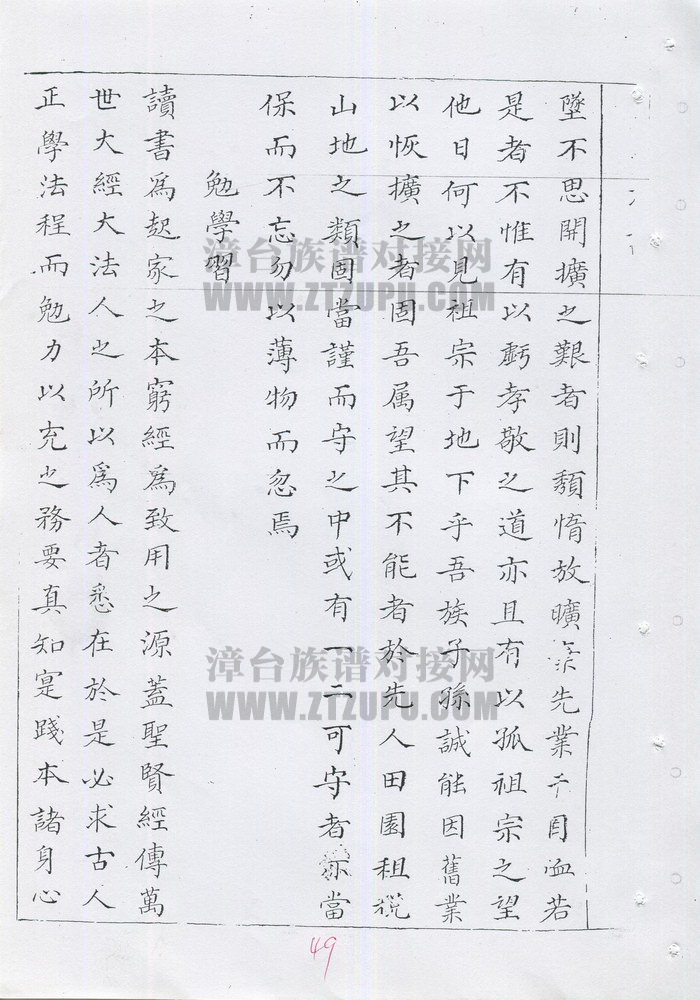 墜不思開擴之艱者則頹惰放曠棄先業于自血若
是者不惟有以虧孝敬之道亦且有以孤祖宗之望
他日何以見祖宗于地下乎吾族子孫誠能因舊業
以恢擴之者固吾属望其不能者於先人田園租稅
山地之類固當謹而守之中或有一二可守者亦當
保而不忘勿以薄物而忽焉
勉學習
讀書爲起家之本窮經爲致用之源蓋聖賢經傳萬
世大經大法人之所以爲人者悉在於是必求古人
正學法程而勉力以充之務要真知寔踐本諸身心
漳台族谱对接网
WWW.ZTZUPU.COM
漳台族谱对接网
WWW.ZTZUPU.COM
49